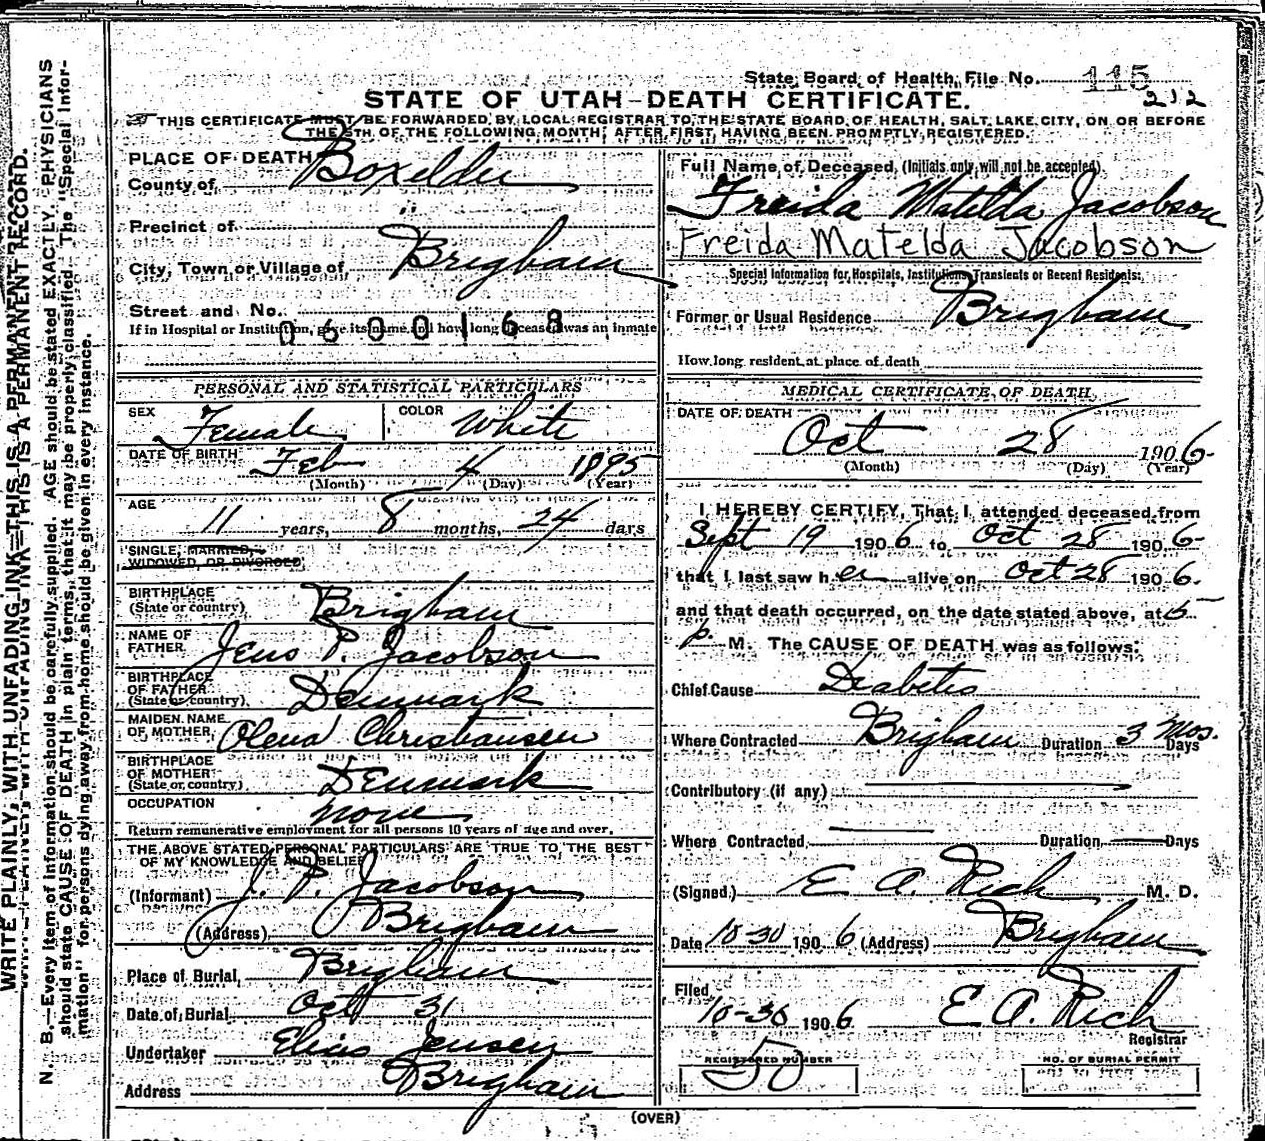 State Board of Health, File No. 115
212
STATE OF UTAH-DEATH CERTIFICATE.
THIS CERTIFICATE MUST BE FORWARDED BY LOCAL REGISTRAR TO THE STATE BOARD OF HEALTH, SALT LAKE CITY, ON OR BEFORE
THE 5TH OF THE FOLLOWING MONTH, AFTER FIRST HAVING BEEN PROMPTLY REGISTERED.
WRITE PLAINLY, WITH UNFADING INK—THIS IS A PERMANENT RECORD.
N. B.—Every item of information should be carefully supplied. AGE should be stated EXACTLY. PHYSICIANS
should state CAUSE OF DEATH in plain terms, that it may be properly classified. The "Special Infor-
mation" for persons dying away from home should be given in every instance.
PLACE OF DEATH
County of Boxelder
Precinct of "
City, Town or Village of Brigham
Street and No.
If in Hospital or Institution, give its name and how long deceased was an inmate
0600168
PERSONAL AND STATISTICAL PARTICULARS
SEX Female COLOR White
DATE OF BIRTH Feb 4 1895
(Month) (Day) (Year)
AGE 11 years, 8 months, 24 days
SINGLE, MARRIED,
WIDOWED, OR DIVORCED
BIRTHPLACE
(State or country) Brigham
NAME OF
FATHER Jens P. Jacobson
BIRTHPLACE
OF FATHER
(State or country) Denmark
MAIDEN NAME
OF MOTHER Olena Christiansen
BIRTHPLACE
OF MOTHER
(State or country) Denmark
OCCUPATION none
Return remunerative employment for all persons 10 years of age and over.
THE ABOVE STATED PERSONAL PARTICULARS ARE TRUE TO THE BEST
OF MY KNOWLEDGE AND BELIEF
(Informant) J. P. Jacobson
(Address) Brigham
Place of Burial, Brigham
Date of Burial Oct 31
Undertaker Elias Jensen
Address Brigham
Full Name of Deceased, (Initials only will not be accepted)
Freida Matelda Jacobson
Freida Matelda Jacobson
Special Information for Hospitals, Institutions, Transients or Recent Residents:
Former or Usual Residence Brigham
How long resident at place of death
MEDICAL CERTIFICATE OF DEATH
DATE OF DEATH
Oct 28 1906
(Month) (Day) (Year)
I HEREBY CERTIFY, That I attended deceased from
Sept 19 1906 to Oct 28 1906
that I last saw her alive on Oct 28 1906.
and that death occurred, on the date stated above, at 5
p. M. The CAUSE OF DEATH was as follows:
Chief Cause Diabetis
Where Contracted Brigham Duration 3 mos. Days
Contributory (if any)
Where Contracted Duration Days
(Signed) E A. Rich M. D.
Date 10-30 1906 (Address) Brigham
Filed
10-30 1906 E A. Rich
Registrar
REGISTERED NUMBER
50
NO. OF BURIAL PERMIT
(OVER)